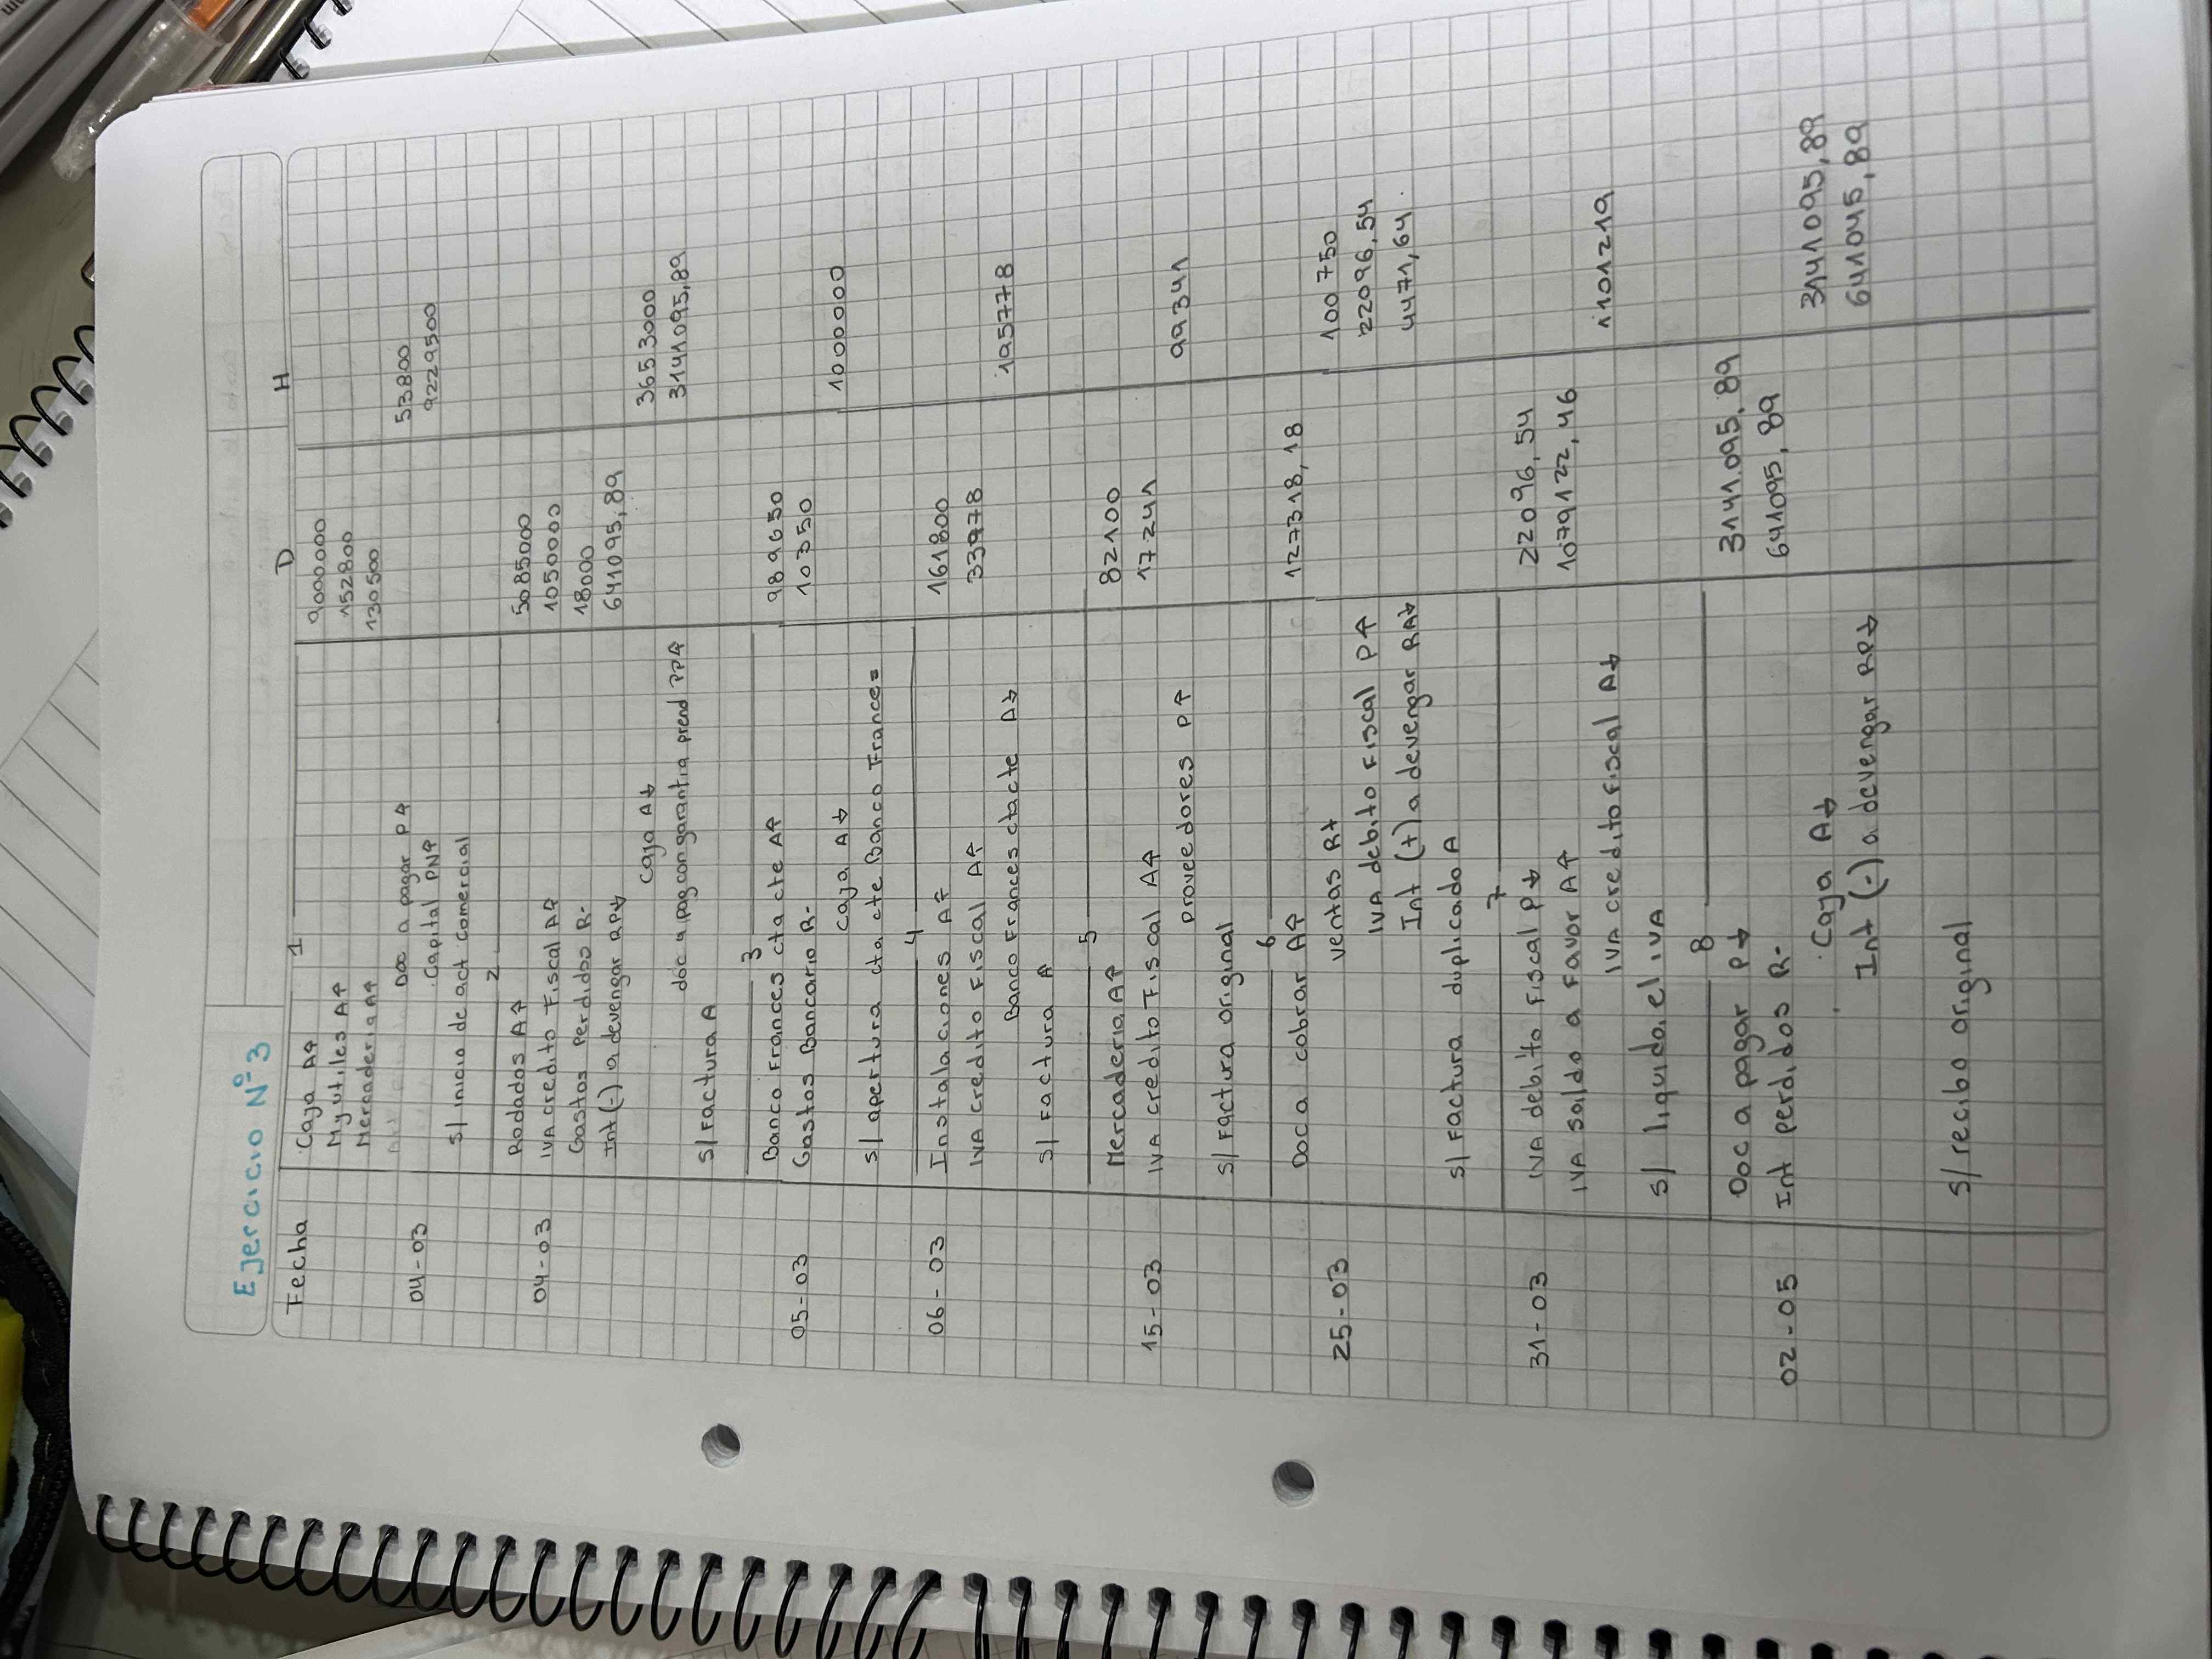 Ejercicio N°3
Fecha D H
1
Caja A↑ 9000000
M y utiles A↑ 152800
Mercaderia A↑ 130500
Doc a pagar P↑ 53800
04-03 Capital PN↑ 9229500
S/ inicio de act comercial
2
Rodados A↑ 5085000
04-03 IVA credito Fiscal A↑ 1050000
Gastos Perdidos R- 18000
Int (-) a devengar RP↓ 641095,89
Caja A↓ 3653000
doc a pag con garantia prend PP↑ 3141095,89
S/ Factura A
3
Banco Frances cta cte A↑ 989650
05-03 Gastos Bancario R- 10350
Caja A↓ 1000000
S/ apertura cta cte Banco Frances
4
06-03 Instalaciones A↑ 161800
IVA credito Fiscal A↑ 33978
Banco Frances ctacte A↓ 195778
S/ Factura A
5
Mercaderia A↑ 82100
15-03 IVA credito Fiscal A↑ 17241
proveedores P↑ 99341
S/ Factura original
6
Doc a cobrar A↑ 127318,18
25-03 ventas R+ 100750
IVA debito Fiscal P↑ 22096,54
Int (+) a devengar RA↓ 4471,64
S/ Factura duplicado A
7
31-03 IVA debito Fiscal P↓ 22096,54
IVA saldo a Favor A↑ 1079122,46
IVA credito Fiscal A↓ 1101219
S/ liquidac el IVA
8
Doc a pagar P↓ 3141095,89
02-05 Int perdidos R- 641095,89
Caja A↓ 3141095,89
Int (-) a devengar RP↓ 641045,89
S/ recibo original